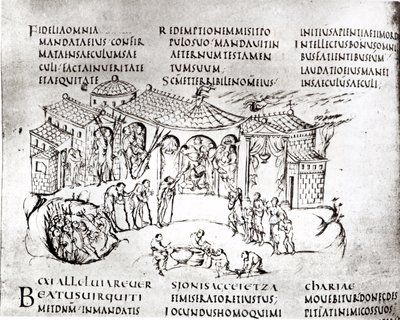 FIDELIAOMNIA
MANDATAEIUS·CONFIR
MATAINSAECULUMSAE
CULI·FACTAINUERITATE
ETAEQUITATE
REDEMPTIONEMMISITPO
PULOSUO·MANDAUITIN
AETERNUMTESTAMEN
TUMSUUM·
SCMETTERRIBILENOMEIUS·
INITIUSAPIENTIAETIMORD
INTELLECTUSBONUSOMNI
BUSFACIENTIBUSEUM
LAUDATIOEIUSMANET
INSAECULUSAECULI;
CXI ALLELUIAREUER
BEATUSUIRQUITI
METDNM·INMANDATIS
SIONISAGGEIETZA
EIMISERATORETIUSTUS;
IOCUNDUSHOMOQUIMI
CHARIAE
MOUEBITURDONECDES
PICIATINIMICOSSUOS·